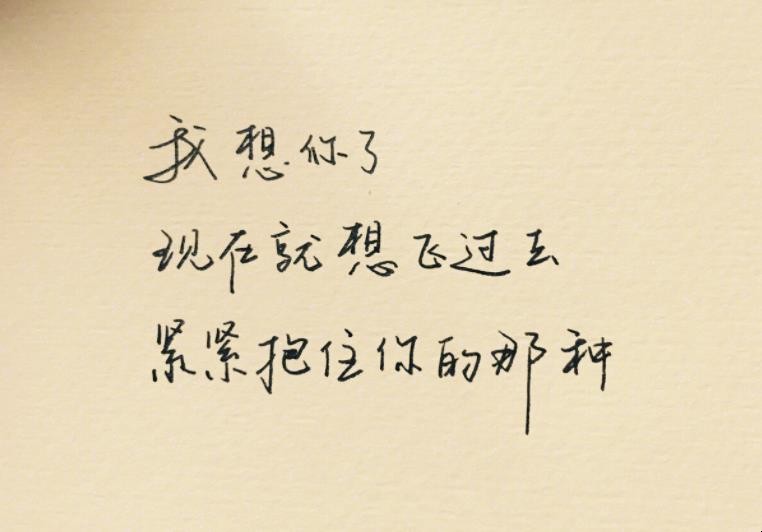 我想你了
现在就想飞过去
紧紧抱住你的那种